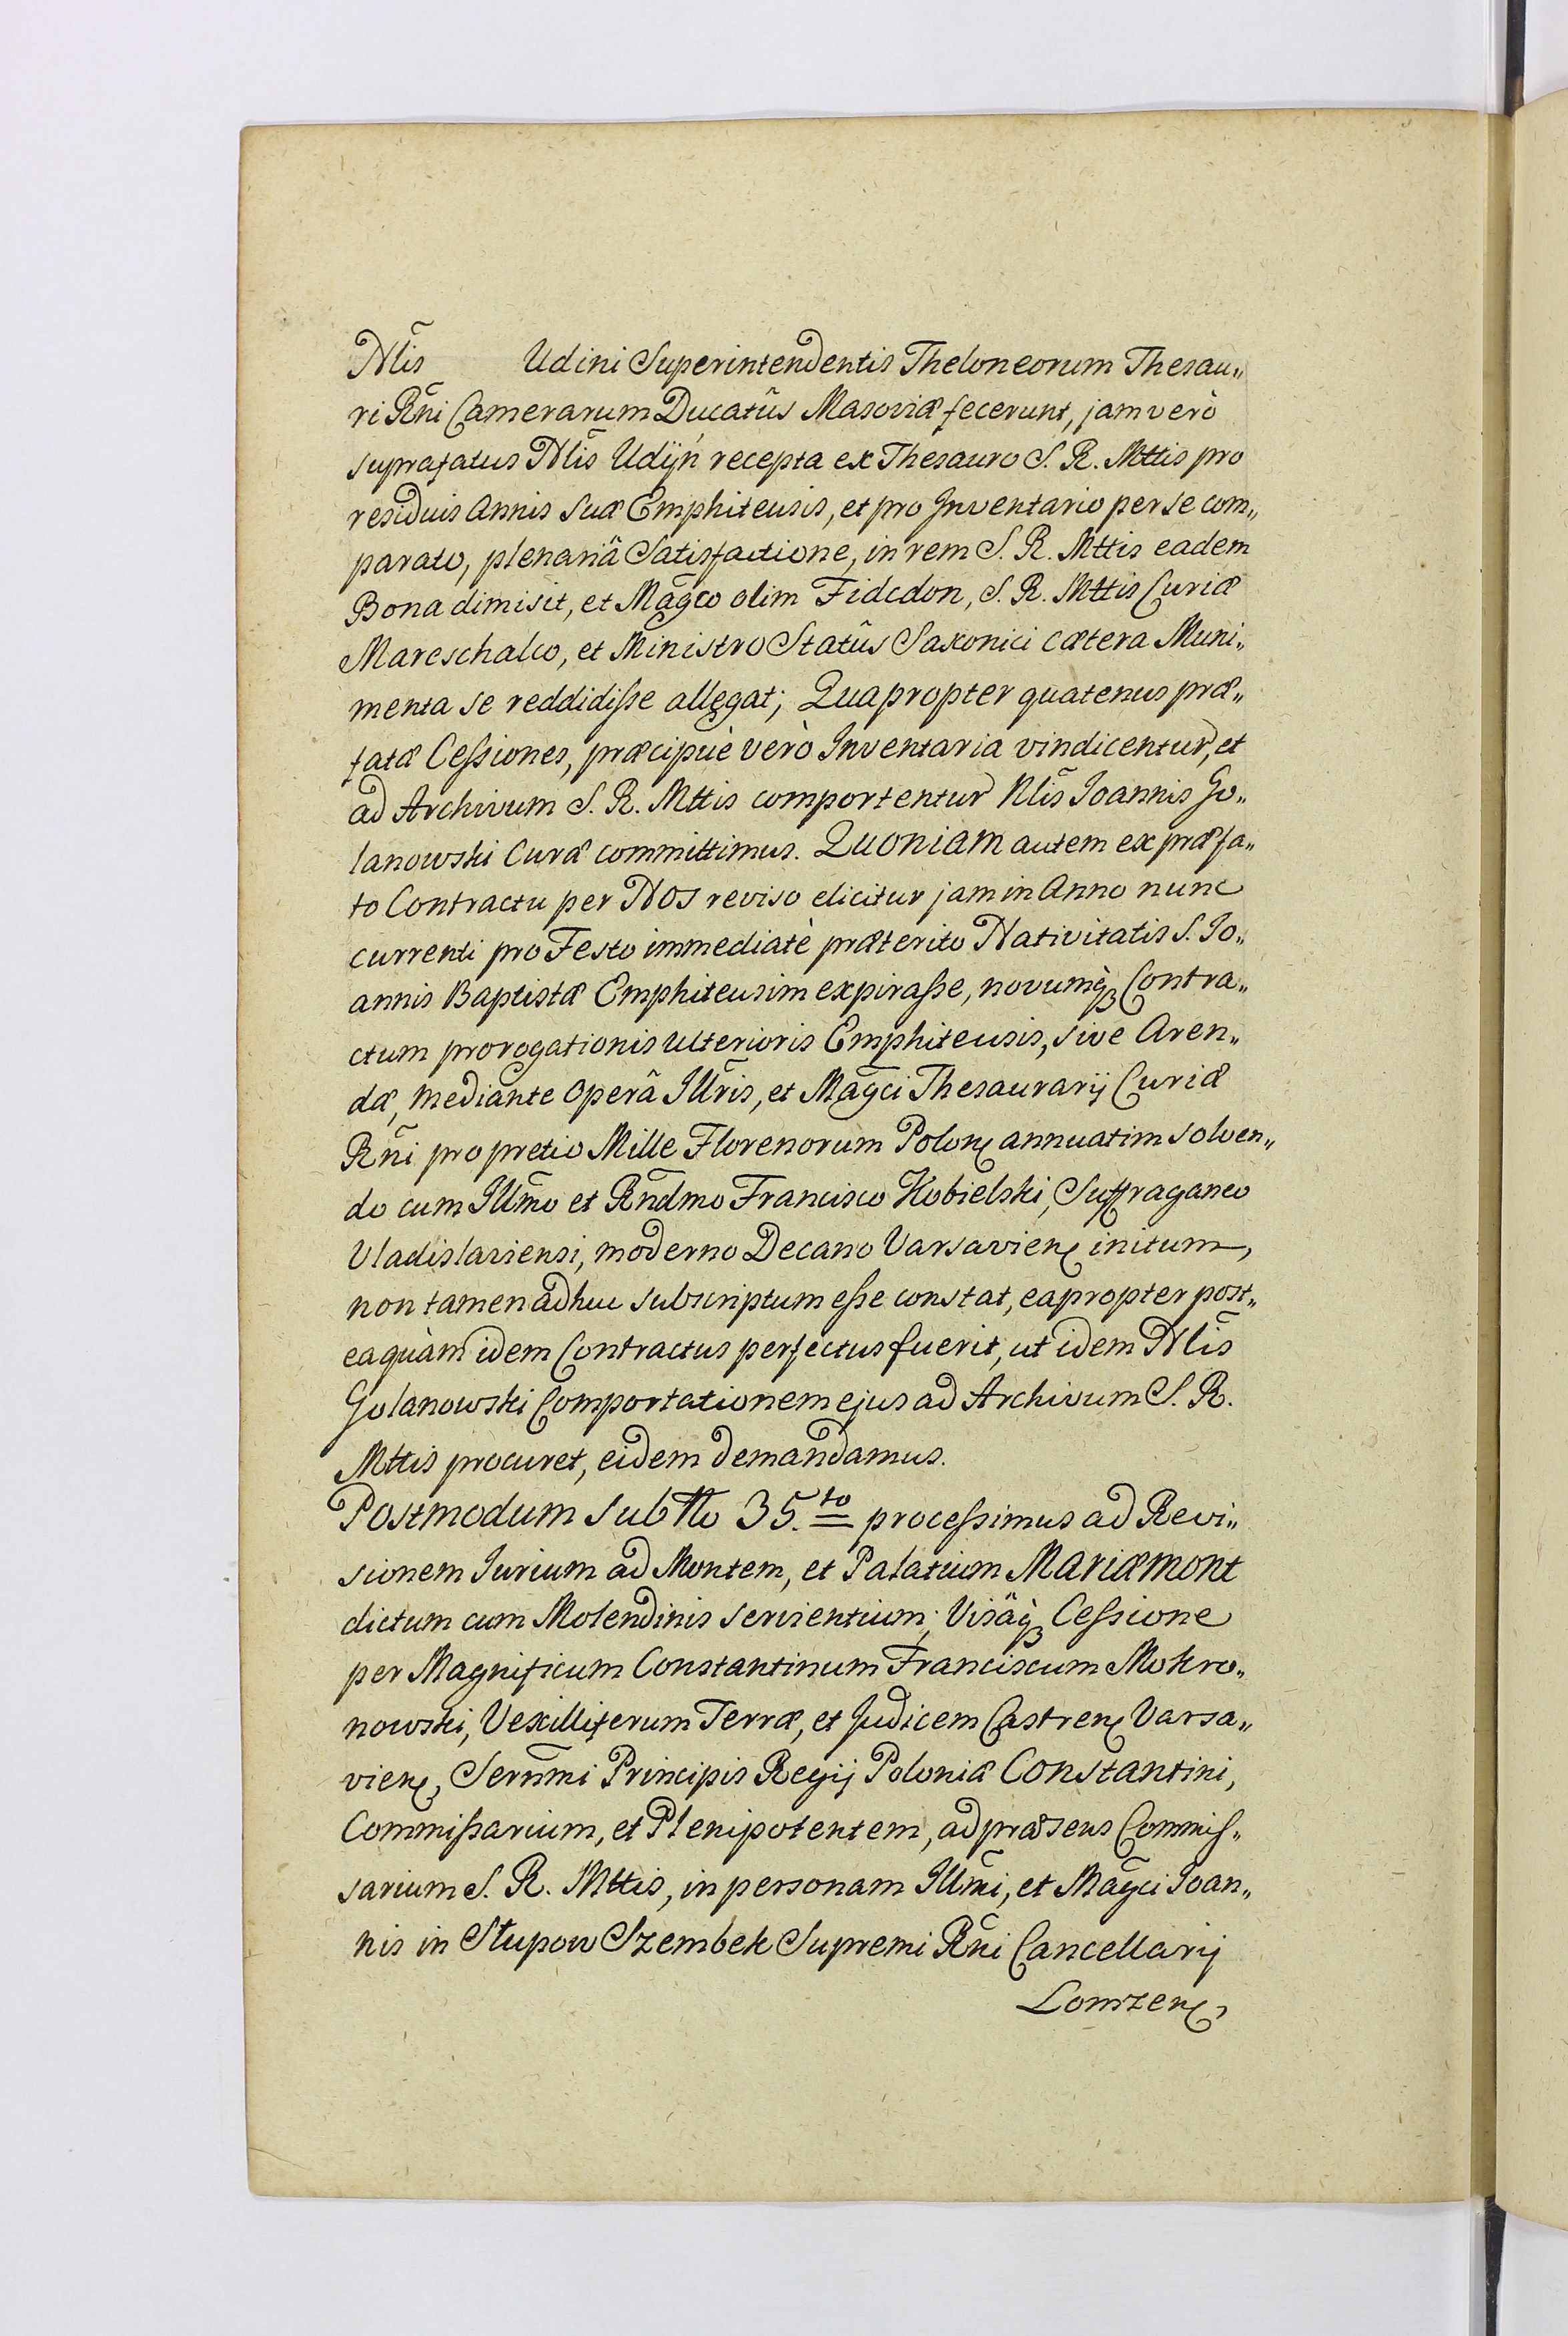 Nlis̃ Udini Superintendentis Theloneorum Thesau„
ri Rñi Camerarum Ducatûs Masoviæ fecerunt, jam verò
suprafatus Nlis̃ Udijn recepta ex Thesauro S. R. Mttis pro
residuis Annis suæ Emphiteusis, et pro Inventario per se com„
parato, plenariâ Satisfactione, in rem S. R. Mttis eadem
Bona dimisit, et Mag̃co olim Fidedon, S. R. Mttis Curiæ
Mareschalco, et Ministro Statûs Saxonici cætera Muni„
menta se reddidiſse allegat; Quapropter quatenus præ„
fatæ Ceſsiones, præcipuè verò Inventaria vindicentur, et
ad Archivum S. R. Mttis comportentur Nlis̃ Joannis Go„
lanowski Curæ committimus. Quoniam autem ex præfa„
to Contractu per Nos reviso elicitur jam in Anno nunc
currenti pro Festo immediatè præterito Nativitatis S. Jo„
annis Baptistæ Emphiteusim expiraſse, novumq̀ꝫ Contra„
ctum prorogationis ulterioris Emphiteusis, sive Aren„
dæ, mediante Operâ Illr̃is, et Mag̃ci Thesaurarij Curiæ
Rñi pro pretio Mille Florenorum Polonꝭ annuatim solven„
do cum Illm̃o et Rñdmo Francisco Kobielski, Suffraganeo
Vladislaviensi, moderno Decano Varsavienꝭ initum,
non tamen adhuc subscriptum eſse constat, eapropter post„
eaquàm idem Contractus perfectus fuerit, ut idem Nlis̃
Golanowski Comportationem ejus ad Archivum S. R.
Mttis procuret, eidem demandamus.
Postmodum sub No 35.to proceſsimus ad Revi„
sionem Jurium ad Montem, et Palatium Mariæmont
dictum cum Molendinis servientium; Visâq̀ꝫ Ceſsione
per Magnificum Constantinum Franciscum Mokro„
nowski, Vexilliferum Terræ, et Judicem Castrenꝭ Varsa„
vienꝭ, Serñmi Principis Regij Poloniæ Constantini,
Commiſsarium, et Plenipotentem, ad præsens Commiſ„
sarium S. R. Mttis, in personam Illm̃i, et Mag̃ci Joan„
nis in Słupow Szembek Supremi Rñi Cancellarij
Lomzenꝭ,